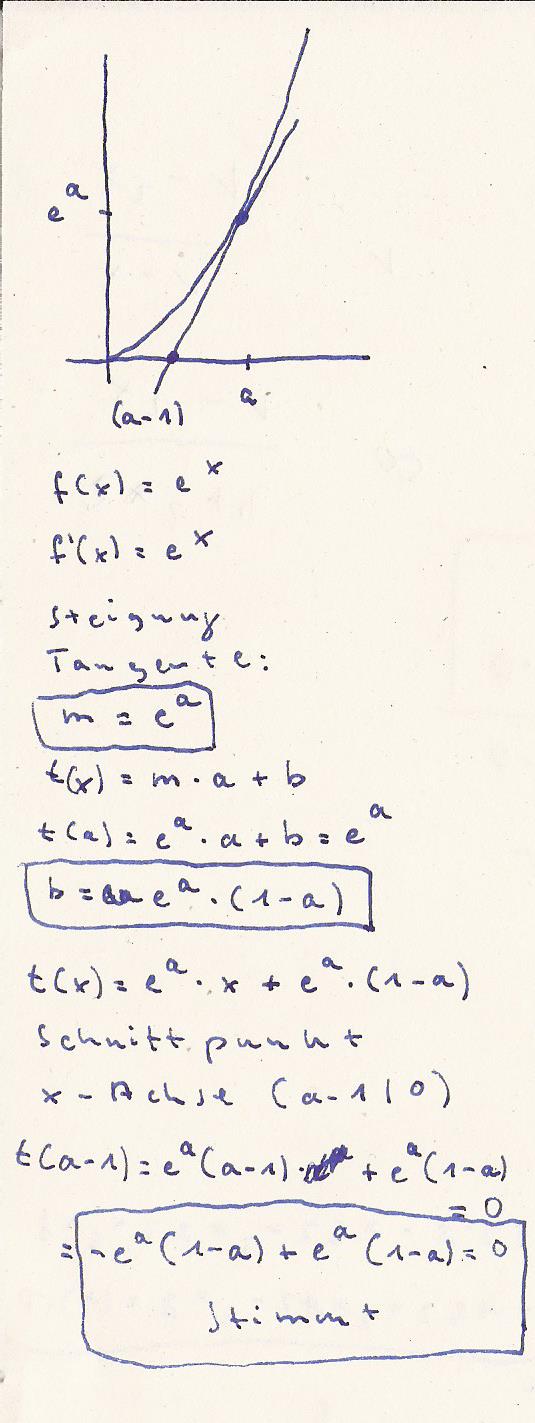 e^a
(a-1)
a
f(x) = e^x
f'(x) = e^x
Steigung
Tangente:
m = e^a
t(x) = m · a + b
t(a) = e^a · a + b = e^a
b = e^a · (1-a)
t(x) = e^a · x + e^a · (1-a)
Schnittpunkt
x-Achse (a-1|0)
t(a-1) = e^a(a-1) · + e^a(1-a)
= 0
= -e^a(1-a) + e^a(1-a) = 0
stimmt